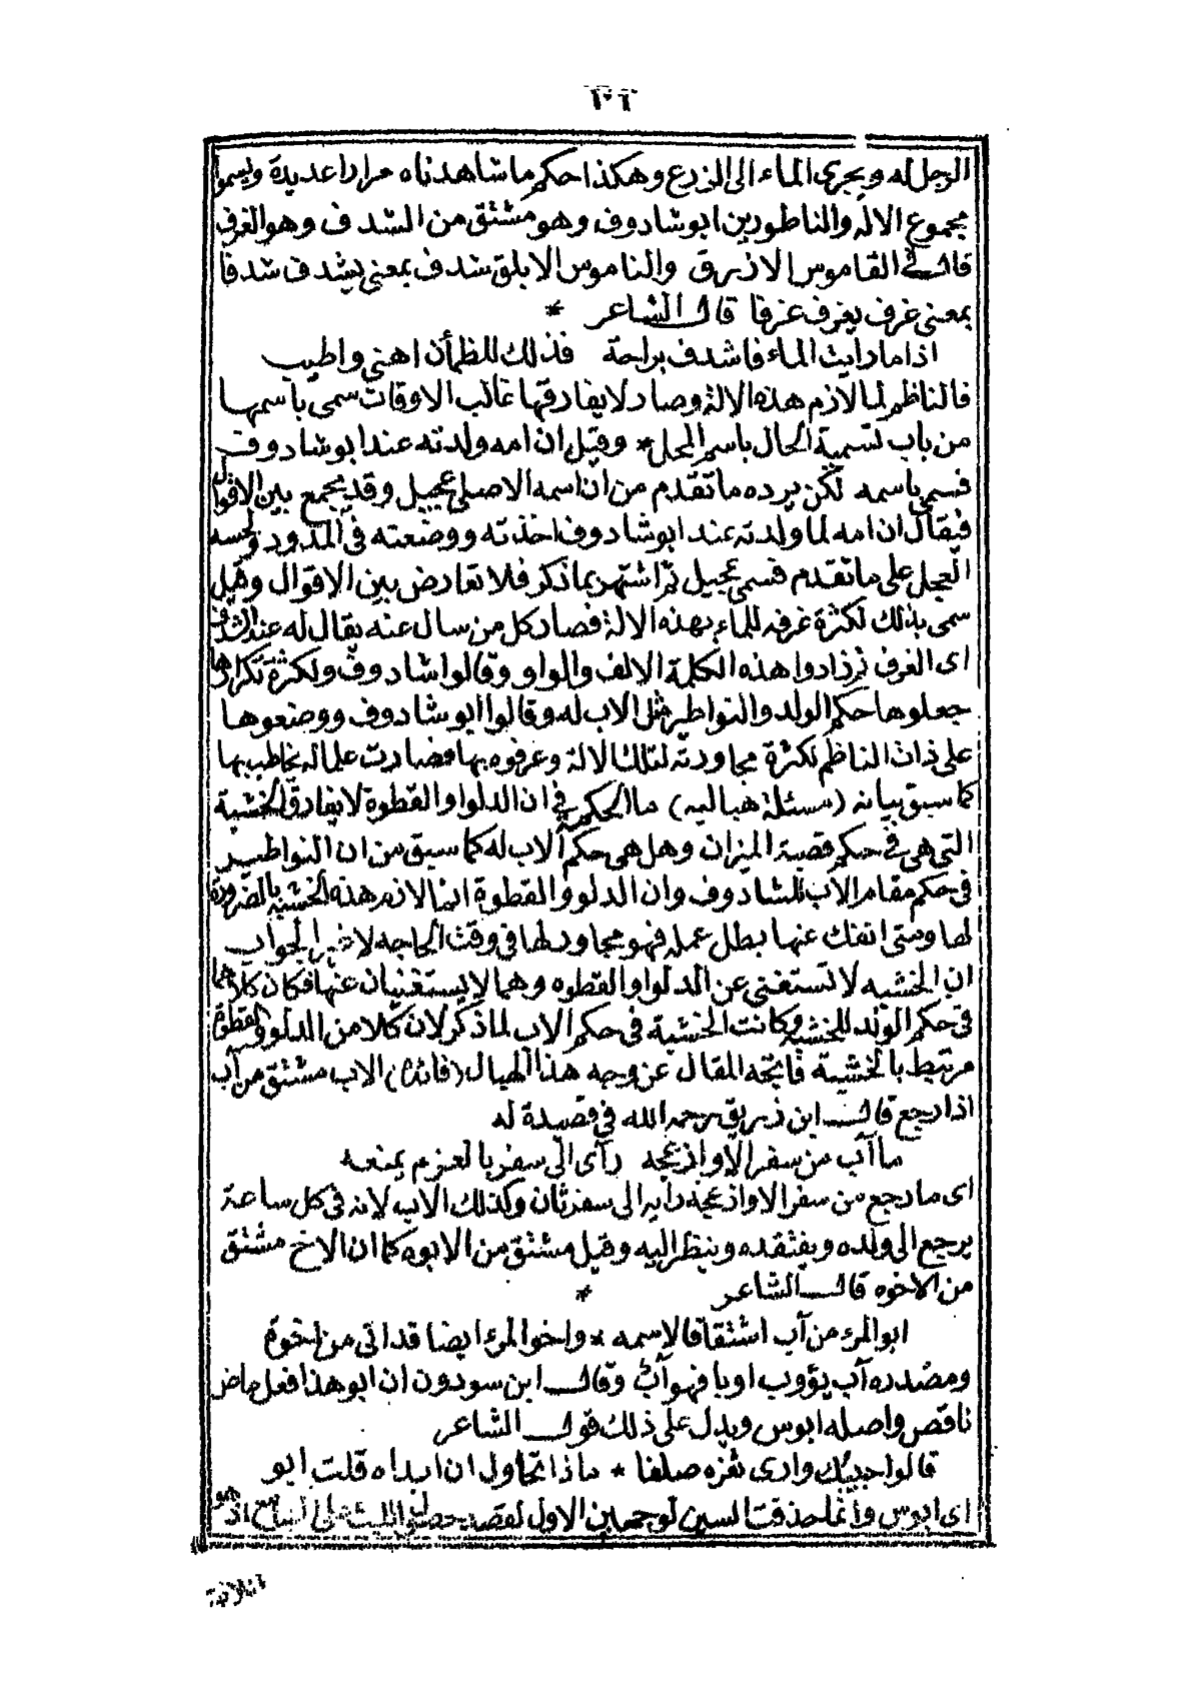 الرجل له ويجرى الماء الى الزرع وهكذا حكم ما شاهدناه مرارا عديدة ويسموا
مجموع الالة والناطورين ابو شادوف وهو مشتق من الشدف وهو الغرف
قال فى القاموس الازرق والناموس الابلق شدف بمعنى يشدف شدفا
بمعنى غرف يغرف غرفا قال الشاعر *
اذا ما رايت الماء فاشدف براحة فذلك للظمآن اهنى واطيب
فالناظم لما لازم هذه الالة وصار لا يفارقها غالب الاوقات سمى باسمها
من باب تسمية الحال باسم المحل * وقيل ان امه ولدته عند ابو شادوف
فسمى باسمه لكن يرده ما تقدم من ان اسمه الاصلى عجيل وقد يجمع بين الاقوال
فيقال ان امه لما ولدته عند ابو شادوف اخذته ووضعته فى المدود ولحسه
العجل على ما تقدم فسمى عجيل ثم اشتهر بما ذكر فلا تعارض بين الاقوال وقيل
سمى بذلك لكثرة غرفه للماء بهذه الالة فصار كل من سال عنه يقال له عند الشدف
اى الغرف ثم زادوا هذه الكلمة الالف والواو وقالوا شادوف ولكثرة تكرارها
جعلوها حكم الولد والنواطير مثل الاب له وقالوا ابو شادوف ووضعوها
على ذات الناظم لكثرة مجاورته لتلك الالة وعرفوه بها فصارت علما له يخاطب بها
كما سبق بيانه (مسئلة هباليه) ما الحكمة فى ان الدلو او القطوة لا يفارق الخشبة
التى هى فى حكم قصبة الميزان وهل هى حكم الاب له كما سبق من ان النواطير
فى حكم مقام الاب للشادوف وان الدلو والقطوة انما لازم هذه الخشبة بالضرورة
لها ومتى انفك عنها بطل عمله فهو مجاور لها فى وقت الحاجه لا غير الجواب
ان الخشبه لا تستغنى عن الدلو او القطوه وهما لا يستغنيان عنها فكان كلاهما
فى حكم الولد للخشبة وكانت الخشبة فى حكم الاب لما ذكر لان كلا من الدلو والقطوة
مرتبط بالخشبة فاتجه المقال عن وجه هذا الهبال (فائدة) الاب مشتق من آب
اذا رجع قال ابن زريق رحمه الله فى قصيدة له
ما آب من سفر الا وازعجه رآى الى سفر بالعزم يمنعه
اى ما رجع من سفر الا وازعجه رايه الى سفر ثان وكذلك الاب لانه فى كل ساعة
يرجع الى ولده ويفتقده وينظر اليه وقيل مشتق من الابوه كما ان الاخ مشتق
من الاخوه قال الشاعر *
ابو المرء من آب اشتقاقا لاسمه * واخو المرء ايضا قد اتى من اخوة
ومصدره آب يؤوب اوبا فهو آب وقال ابن سودون ان ابو هذا فعل ماض
ناقص واصله ابوس ويدل على ذلك قول الشاعر
قالوا حبيبك وارى ثغره صلفا * ماذا تحاول ان ابداه قلت ابو
اى ابوس وانما حذفت السين لوجهين الاول لقصد حصول اللبث على السامع اذ هو